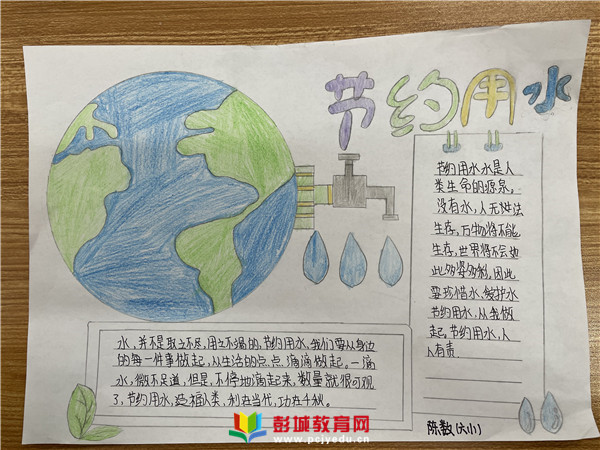 节约用水
节约用水水是人
类生命的源泉。
没有水,人无法
生存,万物将不能
生存,世界将不会如
此多姿多彩,因此
要珍惜水,爱护水
节约用水,从我做
起,节约用水,人
人有责
水,并不是取之不尽,用之不竭的,节约用水,我们要从身边
的每一件事做起,从生活的点点滴滴做起。一滴
水,微不足道,但是,不停地滴起来,数量就很可观
了,节约用水,造福人类,利在当代,功在千秋。
陈数(六小)
彭城教育网
www.pcjyedu.cn